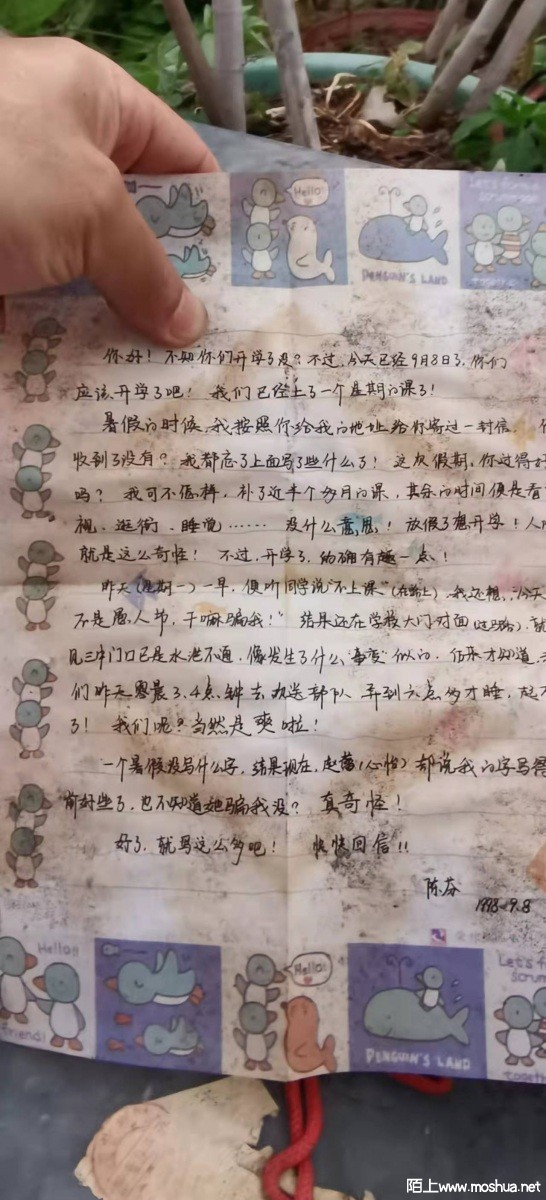 Hello!
PENGUIN'S LAND
Let's
scrum
你好！不知你们开学了没？不过，今天已经9月8日了，你们
应该开学了吧！我们已经上了一个星期的课了！
暑假的时候，我按照你给我的地址给你寄过一封信。
收到了没有？我都忘了上面写了些什么了！这次假期，你过得好
吗？我可不怎样，补了近半个多月的课，其余的时间便是看
视、逛街、睡觉……没什么意思！放假了想开学！人
就是这么奇怪！不过，开学了，的确有趣一点！
昨天（星期一）一早，便听同学说“不上课”（在路上）我还想，“今天
不是愚人节，干嘛骗我！”结果还在学校大门对面
见三中门口已是水泄不通，像发生了什么事变似的。后来才知道
们昨天零晨3、4点钟去欢送部队 弄到六点多才睡，
了！我们呢？当然是爽啦！
一个暑假没写什么字，结果现在，赵蕾（心怡）却说我的字写得
前好些了，也不知道她骗我没？真奇怪！
好了，就写这么多吧！ 快快回信!!
陈芬
1998.9.8
Hello!!
friend!
Hello!
PENGUIN'S LAND
Let's
scrum
together
陌上www.moshua.net